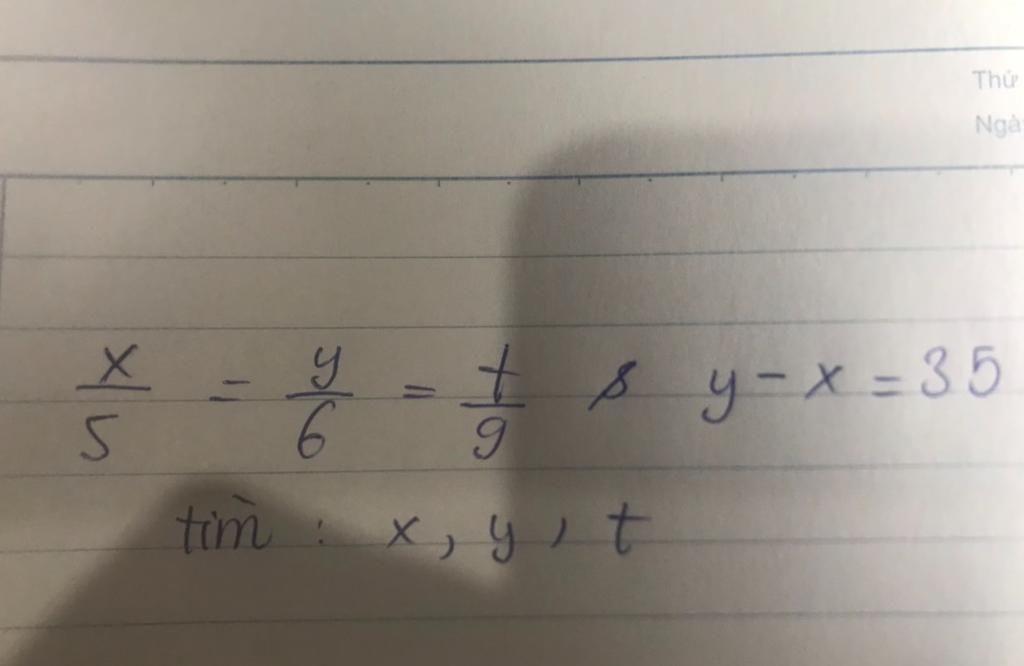 Thứ
Ngà
x/5 = y/6 = t/9 & y - x = 35
tìm : x, y, t